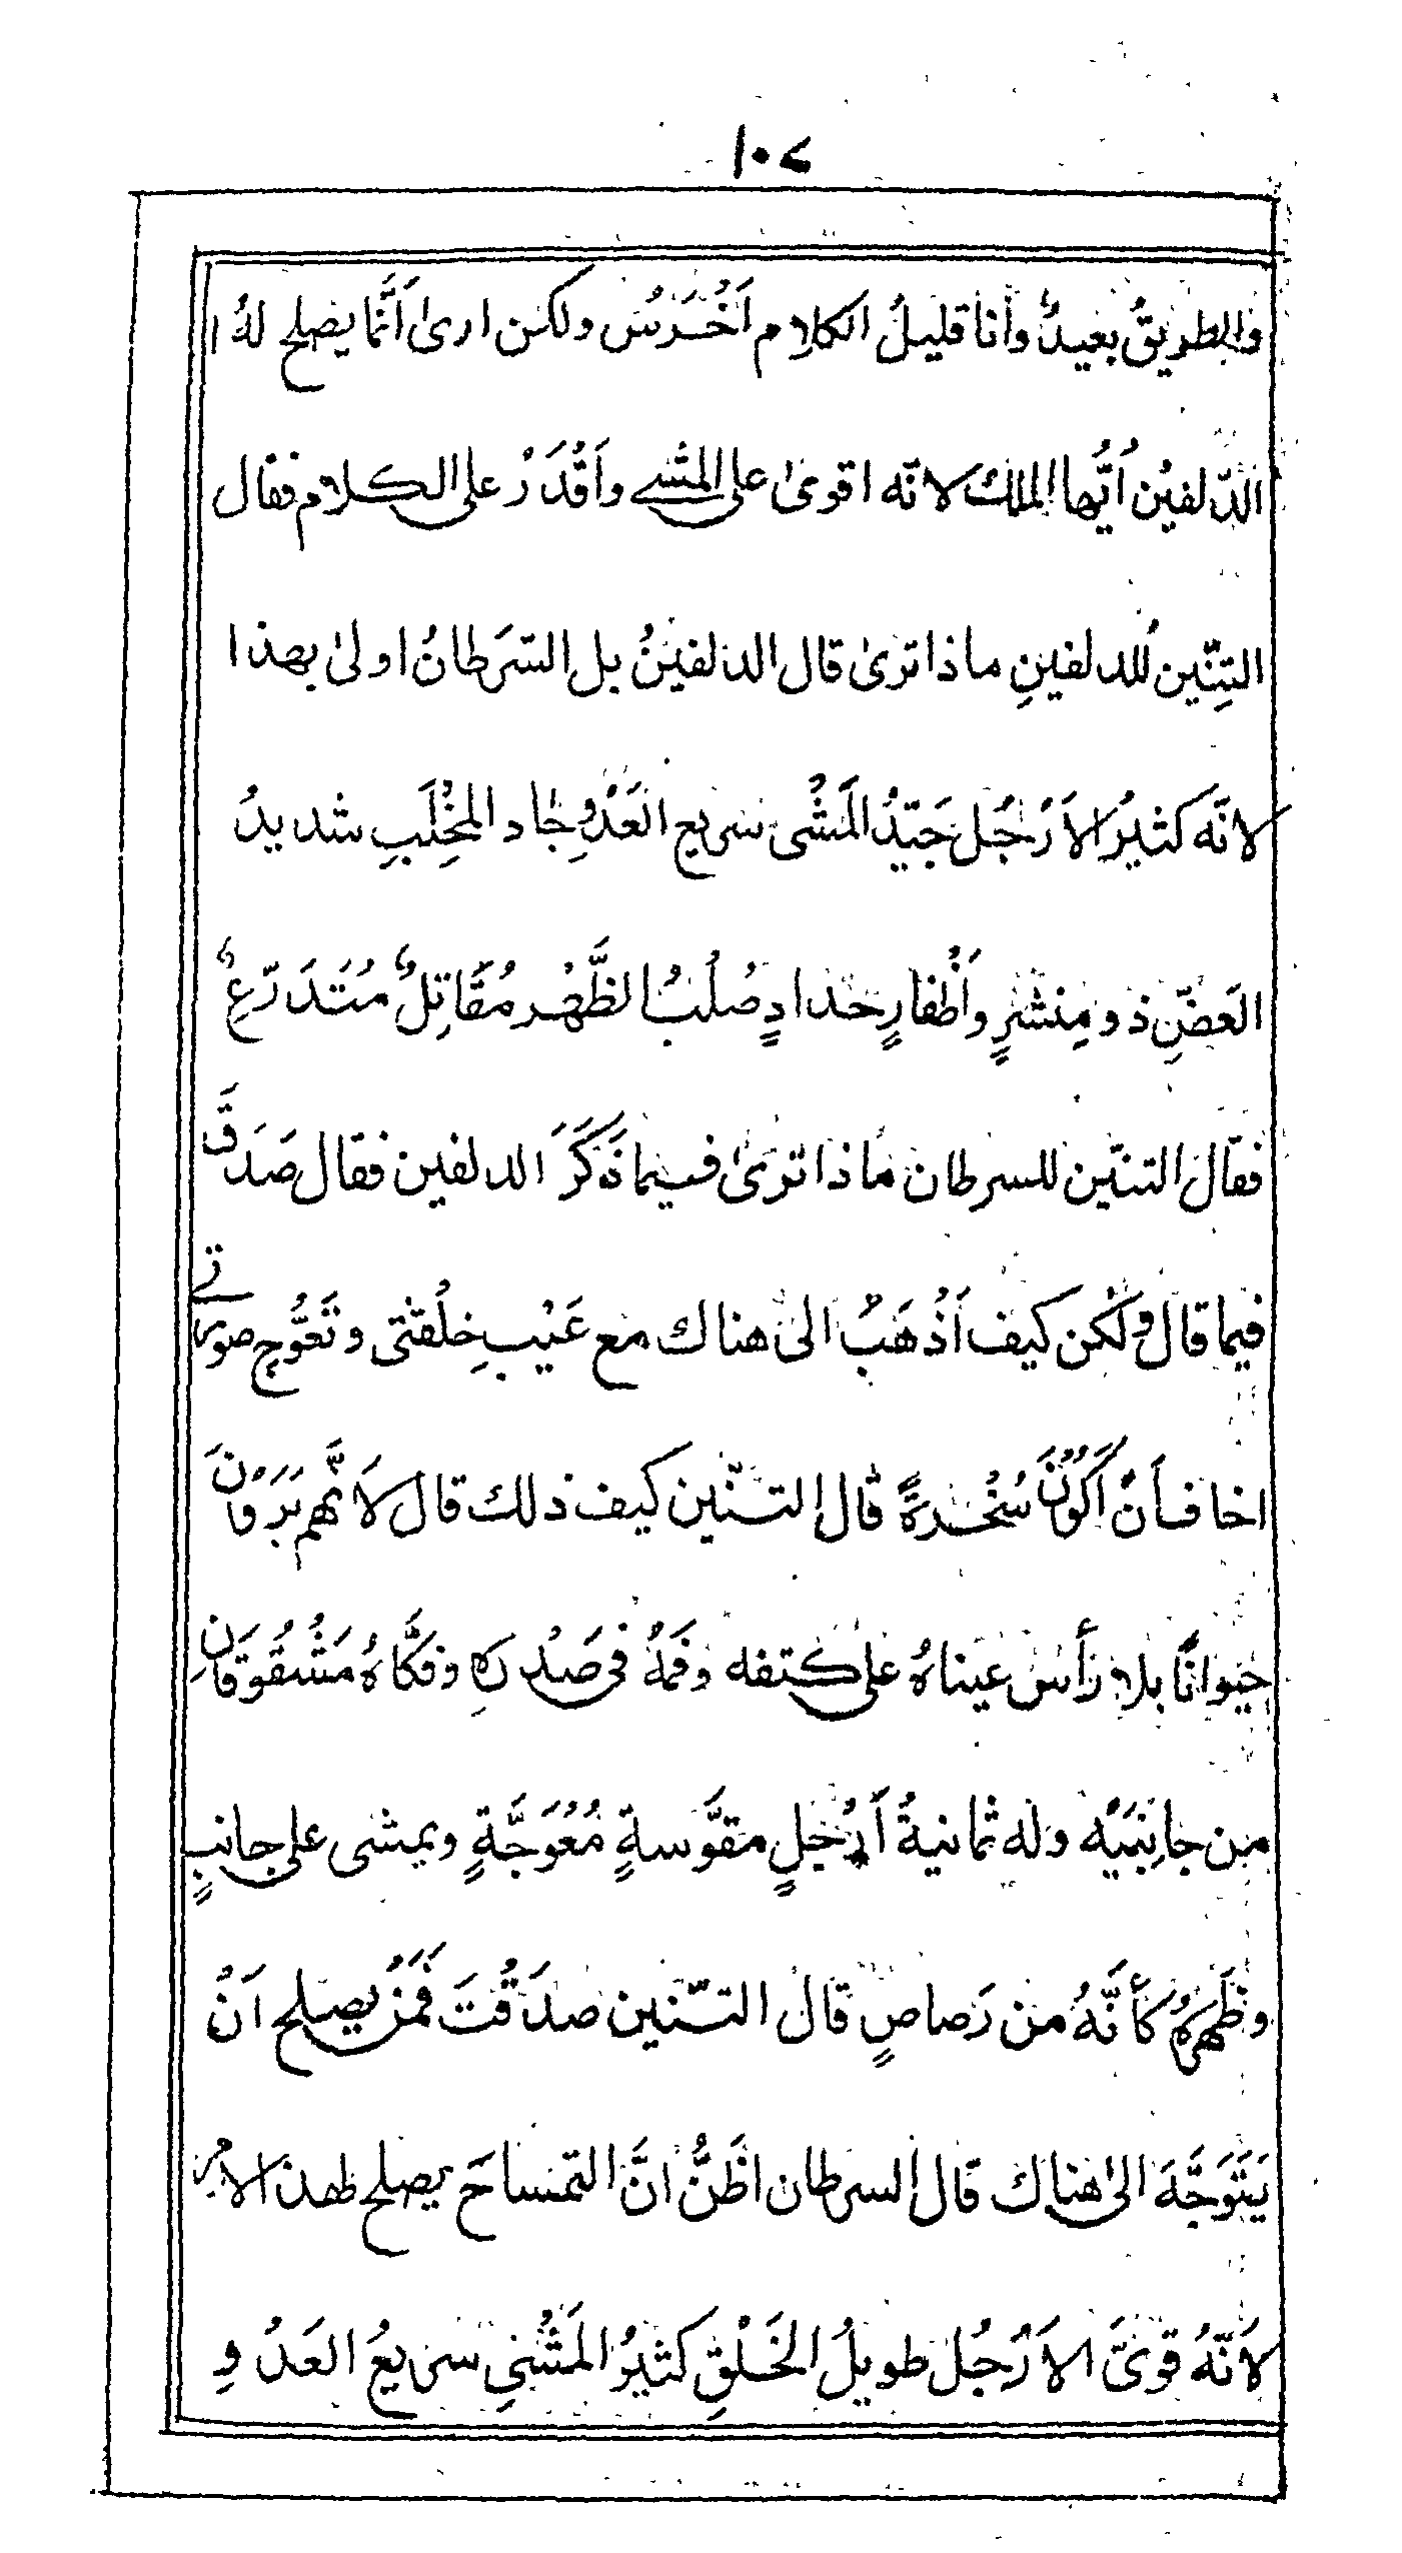 ١٠٧
والطريقُ بعيدٌ وأنا قليلُ الكلامِ أَخْرَسُ ولكن ارىٰ أَنَّما يصلح لهُ ا
الدّلفيْن أيُّها الملك لانّه اقوىٰ على المشے وأَقْدَرْ على الكلام فقال
التِنّين للدلفينِ ماذا ترىٰ قال الدلفينُ بل السَرَطانُ اولىٰ بهذا
لانَّه كثيرُ الاَرْجُل جَيّدُ المَشْى سريع العَدْوِ حاد المِخْلَبِ شديدُ
العَضِّ ذو مِنشرٍ وأَظْفارٍ حدادٍ صُلْبُ الظَّهْر مُقَاتِلٌ مُتَدَرّعٌ
فقال التنّين للسرطان ماذا ترىٰ فيما ذَكَرَ الدلفين فقال صَدَقَ
فيما قال ولٰكن كيف أَذْهَبُ الىٰ هناك مع عَيْبِ خِلْقتى وتَعَوُّجِ صورتے
اخاف أنْ أَكُوْنَ سُخْرةً قال التنّين كيف ذلك قال لاَنَّهم يَرَوْنَ
حيوانًا بلا رأس عيناهُ على كتفه وفَمُهُ فى صَدْرِهِ وفَكَّاهُ مَشْقُوقَانِ
من جانِبَيْه وله ثمانيةُ أَرْجُلٍ مقوَّسةٍ مُعْوَجَّةٍ ويمشى على جانبٍ
وظَهْرِهُ كأنَّهُ من رَصاصٍ قال التنّين صدَقْتَ فَمَنْ يصلح اَنْ
يَتَوَجَّهَ الىٰ هناك قال السرطان اظَنُّ انَّ التمساحَ يصلح لهذا الامر
لاَنّهُ قوىَّ الاَرْجُل طويلُ الخَلْقِ كثيرُ المَشْىِ سريعُ العَدْوِ